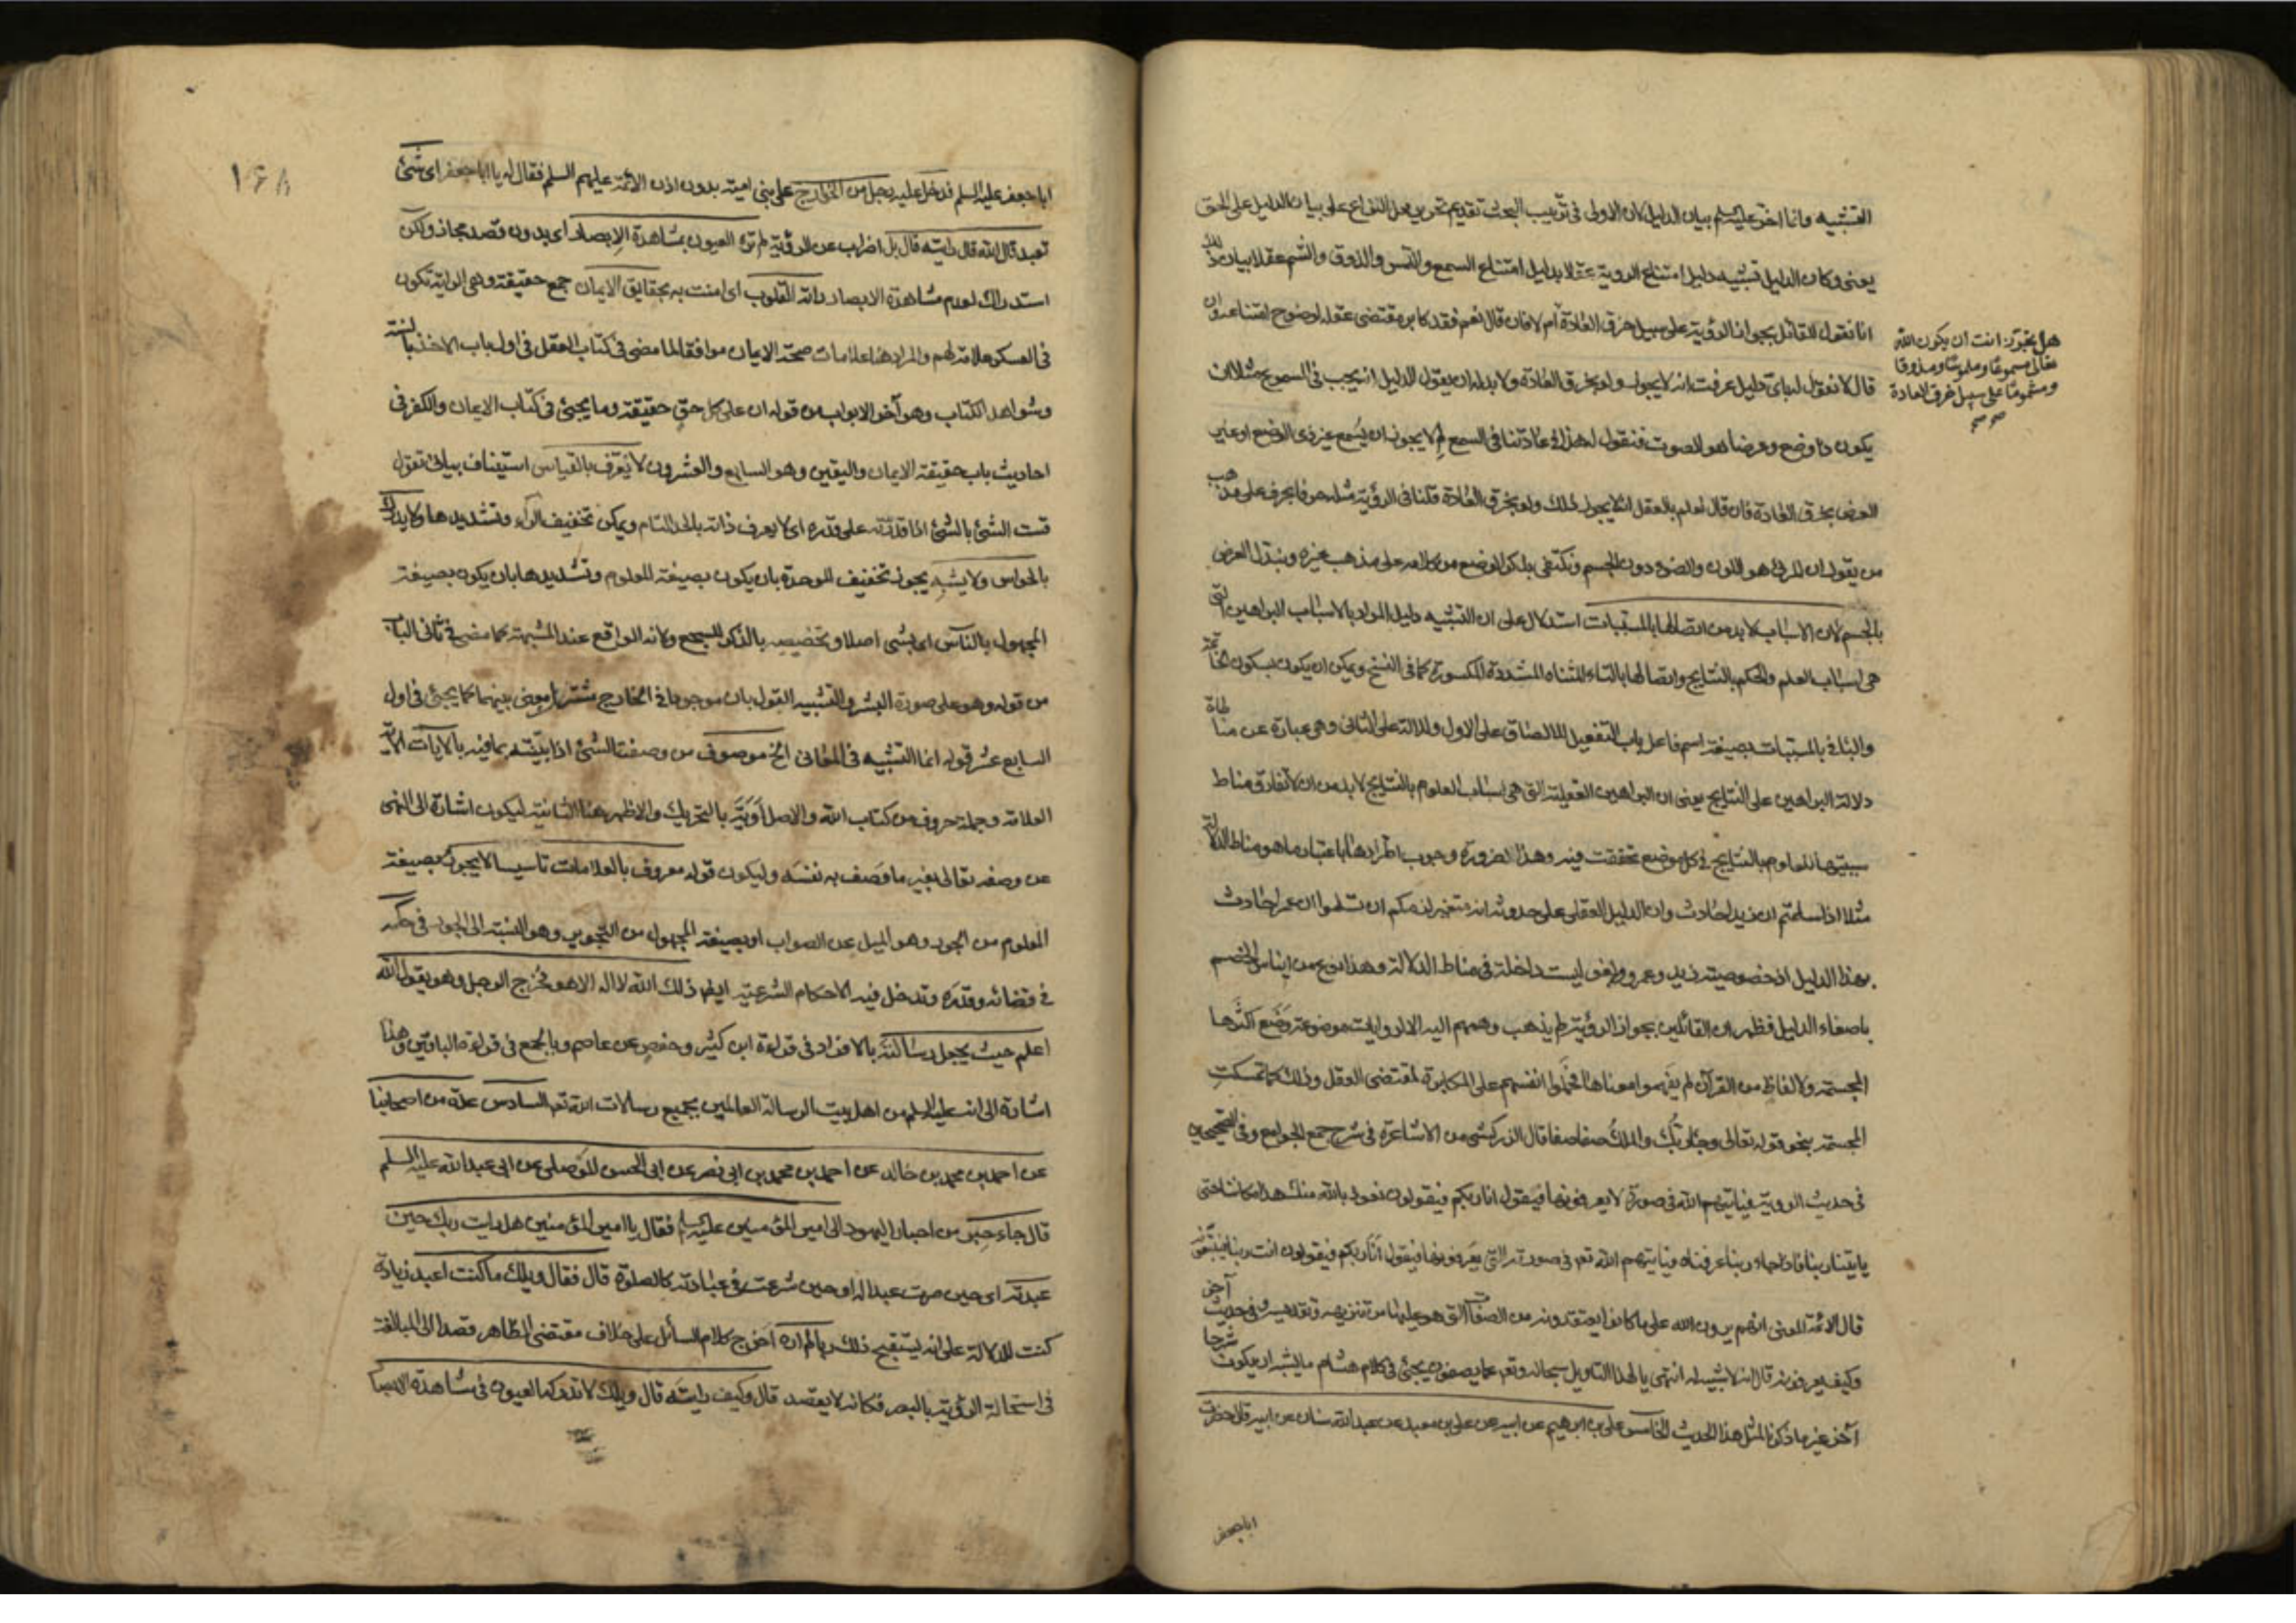 التشبيه وانما اخر عليه السلم بيان الدليل لان الاولى في ترتيب البحث تقديم تحرير محل النزاع على بيان الدليل على الحق
يعني وكان الدليل تشبيه دليل امتناع الروية عقلا بدليل امتناع السمع واللمس والذوق والشم عقلا بيان ذلك
انا نقول للقائل بجواز الرؤية على سبيل خرق العادة ام لا فان قال نعم فقد كابر مقتضى عقله لوضوح امتناعه وان
هل تجوّز انت ان يكون الله
تعالى مسموعا وملموسا ومذوقا
ومشموما على سبيل خرق العادة
صح صح
قال لا نقول له باي دليل عرفت انه لا يجوز ولو بخرق العادة ولا بد له ان يقول الدليل انه يجب في المسموع مثلا ان
يكون ذا وضع وعرضا هو الصوت فنقول له هذا في عادتنا في السمع لم لا يجوز ان يسمع غير ذي الوضع او غير
العرض بخرق العادة فان قال نعلم بالعقل انه لا يجوز ذلك ولو بخرق العادة قلنا في الرؤية مثله حرفا بحرف على مذهب
من يقول ان المرئي هو اللون والضوء دون الجسم ونكتفي بذكر الوضع من كلامه على مذهب غيره ونبدل العرض
بالجسم لان الاسباب لا بد من اتصالها بالمسببات استدلال على ان التشبيه دليل المراد بالاسباب البراهين التي
هي اسباب العلم والحكم بالنتايج واتصالها بالتاء المثناه المشددة المكسورة كما في النسخ ويمكن ان يكون بسكون
والباء في بالمسببات بصيغة اسم فاعل باب التفعيل للالصاق على الاول وللدلالة على الثاني وهي عبارة عن مناط
دلالة البراهين على النتايج يعني ان البراهين العقلية التي هي اسباب العلوم بالنتايج لا بد من ان لا تفارق مناط
سببيتها للعلوم بالنتايج في كل موضع تحققت فيه وهذا لضرورة وجوب اطرادها باعتبار ما هو مناط الدلالة
مثلا اذا سلمتم ان زيدا حادث وان الدليل العقلي على حدوثه انه متغير لزمكم ان تسلموا ان عمرا حادث
بهذا الدليل اذ خصوصية زيد وعمرو وافق ليست داخلة في مناط الدلالة وهذا نوع من ايناس الخصم
باصغاء الدليل فظهر ان القائلين بجواز الرؤية لم يذهب وهمهم اليه الا لروايات موضوعة وضع اكثرها
المجسمة ولالفاظ من القرآن لم يفهموا معناها فحملوا انفسهم على المكابرة لمقتضى العقل وذلك كما تمسكت
المجسمة بنحو قوله تعالى وجاء ربك والملك صفا صفا قال الزركشي من الاشاعرة في شرح جمع الجوامع وفي الصحيحين
في حديث الروية فياتيهم الله في صورة لا يعرفونها فيقول انا ربكم فيقولون نعوذ بالله منك هذا مكاننا حتى
ياتينا ربنا فاذا جاء ربنا عرفناه فياتيهم الله تعالى في صورته التي يعرفونها فيقول انا ربكم فيقولون انت ربنا فيتبعونه
قال الائمة المعنى انهم يرون الله على ما كانوا يعتقدونه من الصفات التي هو عليها من تنزيهه وتقديسه وفي حديث آخر
وكيف يعرفونه قال انه لا شبيه له انتهى يا لهذا التاويل سبحانه وتعالى عما يصفون يجيئ في كلام هشام ما يشبه ان يكون شرحا
آخر غير ما ذكرنا لمثل هذا الحديث الخامس علي بن ابرهيم عن ابيه عن علي بن معبد عن عبد الله بن سنان عن ابيه قال حضرت
اباجعفر
١٦٨
ابا جعفر عليه السلم فدخل عليه رجل من الخوارج على بني امية بدون اذن الائمة عليهم السلم فقال له يا ابا جعفر اى شئ
تعبد قال الله قال رايته قال بل اضراب عن الرؤية لم تره العيون بمشاهدة الابصار اى بدون قصد مجاز ولكن
استدراك لعدم مشاهدة الابصار راته القلوب اى امنت به بحقايق الايمان جمع حقيقة وهي الراية تكون
في العسكر علامة لهم والمراد هنا علامات صحة الايمان موافقا لما مضى في كتاب العقل في اول باب الاخذ بالسنة
وشواهد الكتاب وهو آخر الابواب من قوله ان على كل حق حقيقة وما يجيئ في كتاب الايمان والكفر في
احاديث باب حقيقة الايمان واليقين وهو السابع والعشرون لا يعرف بالقياس استيناف بياني تقول
قست الشئ بالشئ اذا قدرته على قدره اى لا يعرف ذاته بالحد التام ويمكن تخفيف الراء وتشديدها ولا يدرك
بالحواس ولا يشبه يجوز تخفيف الموحدة بان يكون بصيغة المعلوم وتشديدها بان يكون بصيغة
المجهول بالناس اى بشئ اصلا وتخصيصه بالذكر للسجع ولانه الواقع عند المشبهة كما مضى في ثاني الباب
من قوله وهو على صورة البشر والتشبيه القول بان موجودا في الخارج مشترك معنى بينهما كما يجيئ في اول
السابع عشر قوله انما التشبيه في المعاني الخ موصوف من وصفت الشئ اذا بينته بما فيه بالايات الاية
العلامة وجملة حروف من كتاب الله والاصل اوية بالتحريك والاظهر هنا الثانية ليكون اشارة الى النهى
عن وصفه تعالى بغير ما وصف به نفسه وليكون قوله معروف بالعلامات تاسيسا لا يجور بصيغة
المعلوم من الجور وهو الميل عن الصواب او بصيغة المجهول من التجوير وهو النسبة الى الجور في حكمه
في قضائه وقدره وتدخل فيه الاحكام الشرعية ايضا ذلك الله لا اله الا هو فخرج الرجل وهو يقول الله
اعلم حيث يجعل رسالته بالافراد في قراءة ابن كثير وحفص عن عاصم وبالجمع في قراءة الباقين وهذا
اشارة الى انه عليه السلم من اهل بيت الرسالة العالمين بجميع رسالات الله تعالى السادس عدة من اصحابنا
عن احمد بن محمد بن خالد عن احمد بن محمد بن ابي نصر عن ابي الحسن الموصلي عن ابي عبد الله عليه السلم
قال جاء حبر من احبار اليهود الى امير المؤمنين عليه السلم فقال يا امير المؤمنين هل رايت ربك حين
عبدته اى حين صرت عبدا له او حين شرعت في عبادته كالصلوة قال فقال ويلك ما كنت اعبد زيادة
كنت للدلالة على انه يستقبح ذلك ربا لم اره اخرج كلام السائل على خلاف مقتضى الظاهر قصدا الى المبالغة
في استحالة الرؤية بالبصر فكانه لا يقصد قال وكيف رايته قال ويلك لا تدركه العيون في مشاهدة الابصار